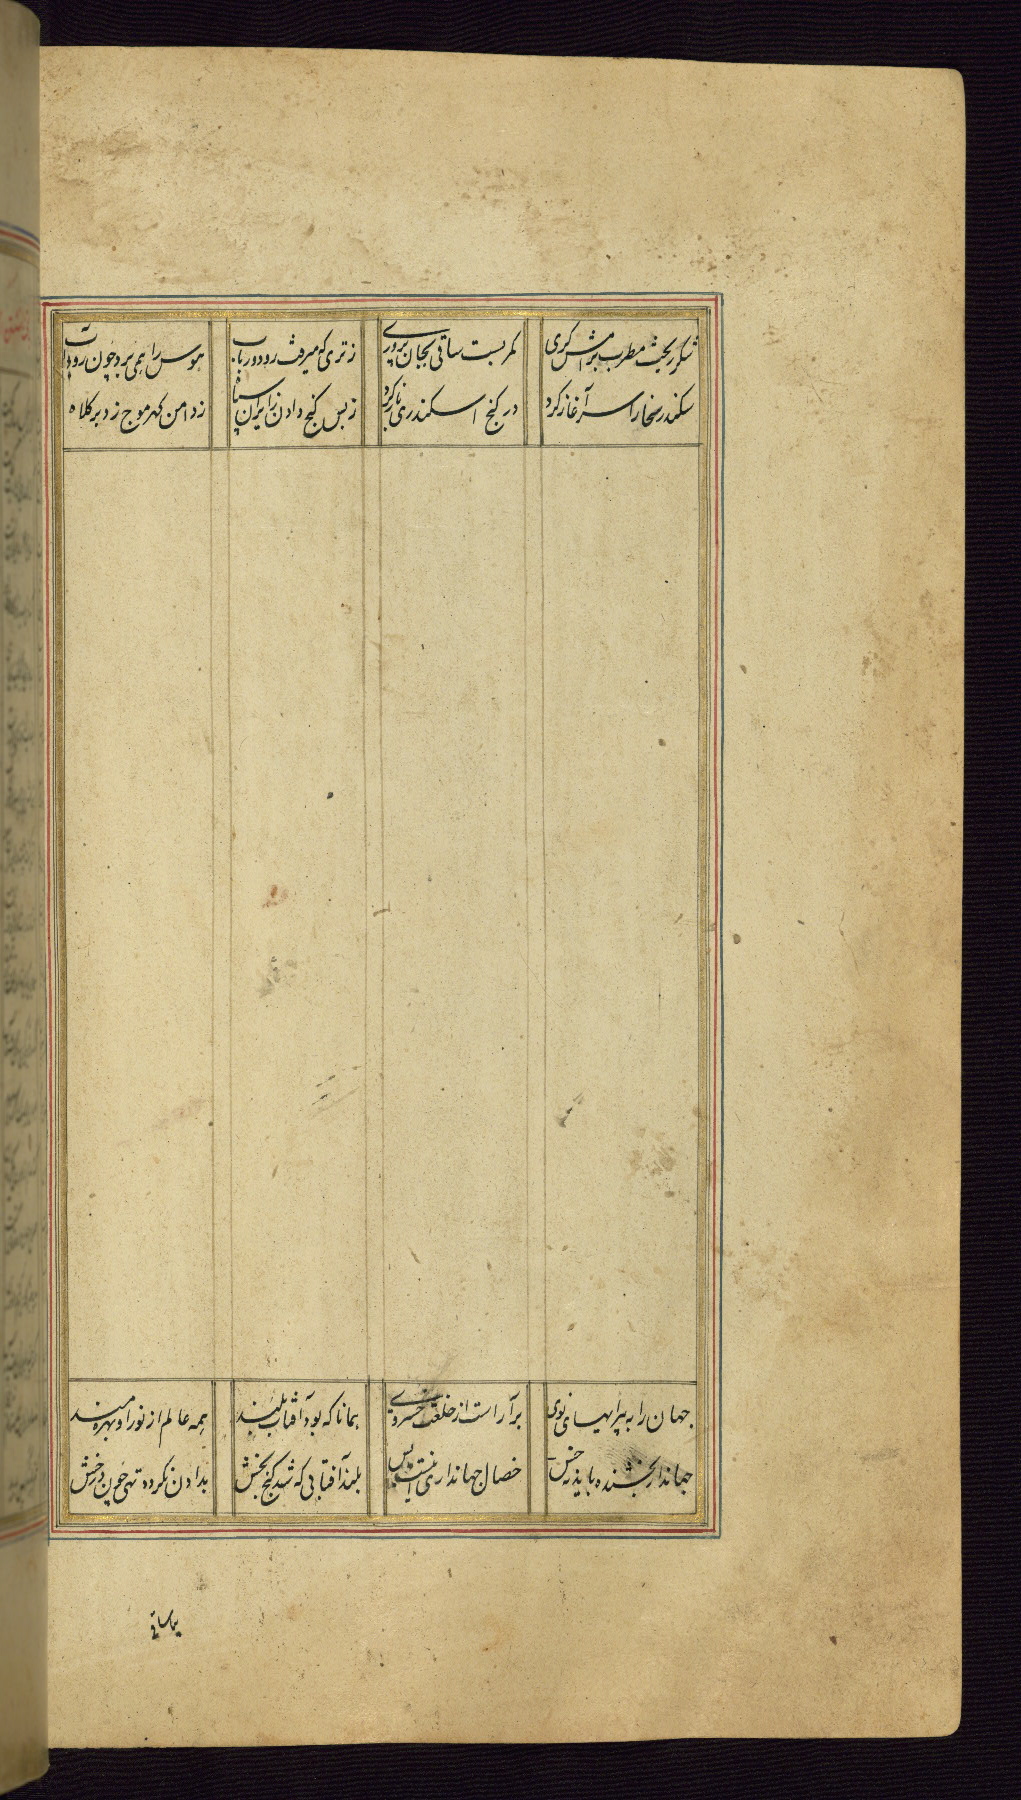 شکر ریخت مطرب برامش گری کمر بست ساقی بجان پروری ز تری که میرفت رود و رباب هوس را همی برد چون رود آب
سکندر سخا را سر آغاز کرد در گنج اسکندری باز کرد ز بس گنج دادن بایران سپاه ز دامن گهر موج زد بر کلاه
جهان را به پیرایهای نوی برآراست از خلعت خسروی همانا که بود آفتاب بلند همه عالم از نور او بهره مند
بلند آفتابی که شد گنج بخش بدادن نکردد تهی چون درخش
جهاندار بخشنده باید نه خس خصال جهانداری اینست بس